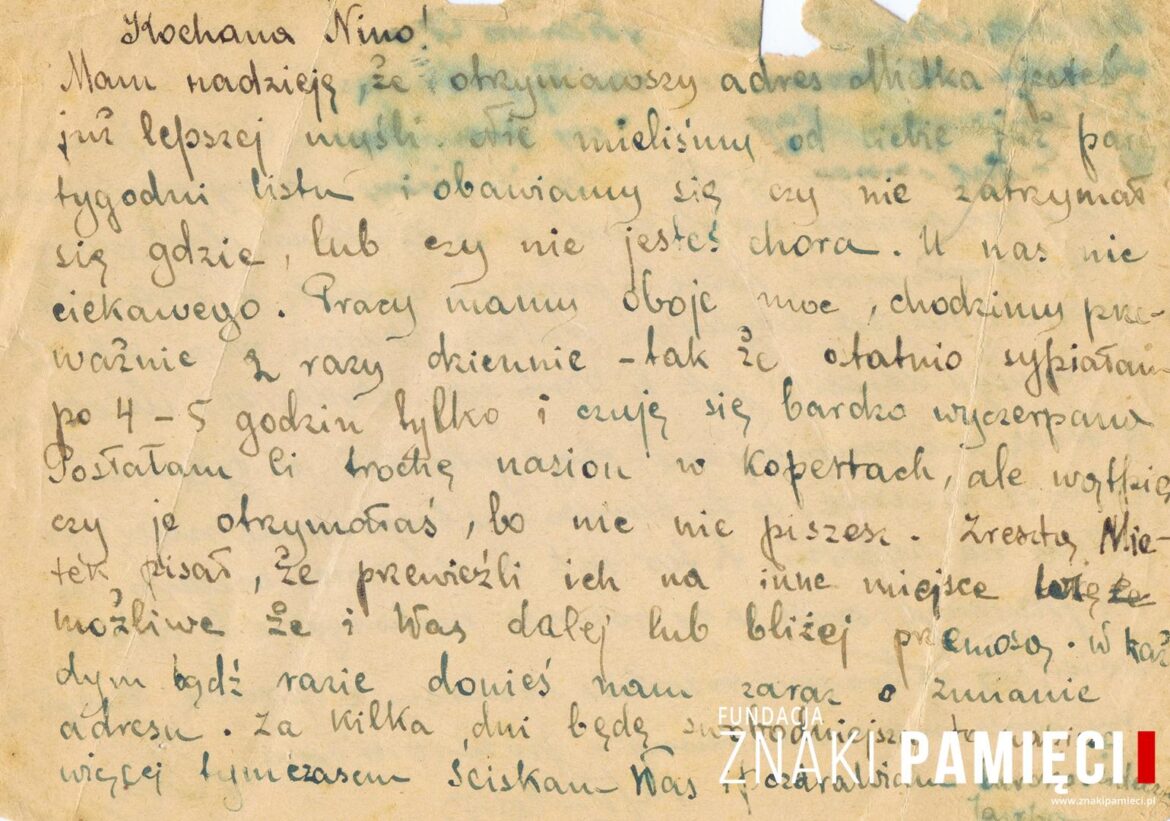 Kochana Nino!
Mam nadzieję, że otrzymawszy adres Mietka jesteś
już lepszej myśli. Nie mieliśmy od Ciebie już parę
tygodni listu i obawiamy się czy nie zatrzymał
się gdzie, lub czy nie jesteś chora. U nas nic
ciekawego. Pracy mamy oboje moc, chodzimy prze-
ważnie 2 razy dziennie - tak że ostatnio sypiałam
po 4-5 godzin tylko i czuję się bardzo wyczerpana
Posłałam Ci trochę nasion w kopertach, ale wątpię
czy je otrzymałaś, bo nic nie piszesz. Zresztą Mie-
tek pisał, że przewieźli ich na inne miejsce
możliwe że i Was dalej lub bliżej przeniosą. W każ
dym bądź razie donieś nam zaraz o zmianie
adresu. Za kilka dni będę
więcej tymczasem ściskam Was i pozdrawiam
FUNDACJA
ZNAKI PAMIĘCI
www.znakipamieci.pl